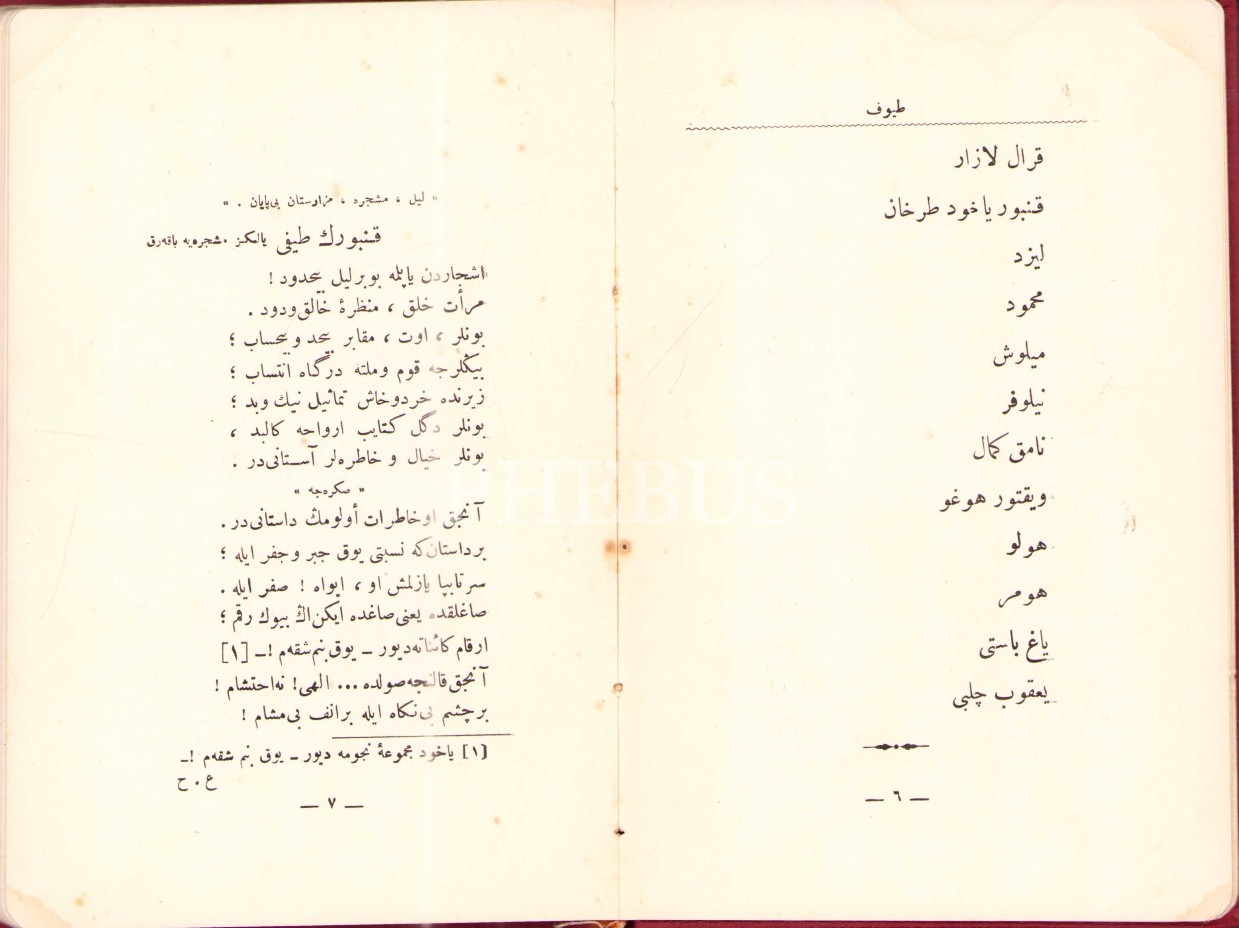 طيوف
قرال لازار
قنبور ياخود طرخان
ليزد
محمود
ميلوش
نيلوفر
نامق كمال
ويقتور هوغو
هولو
هومر
ياغ باستى
يعقوب چلبى
— ٦ —
« ليل ، مشجره ، مزارستان بى‌پايان . »
قنبورك طيفى يالكز مشجره‌يه باقه‌رق
اشجاردن ياپلمه بو برليل بيحدود !
مرأت خلق ، منظرۀ خالق ودود .
بونلر ، اوت ، مقابر بيحد وبيحساب ؛
بيڭلرجه قوم وملته درگاه انتساب ؛
زيرنده خردوخاش تماثيل نيك وبد ؛
بونلر دگل كتايب ارواحه كالبد ،
بونلر خيال و خاطره‌لر آستانى‌در .
« صكره‌جه »
آنجق او خاطرات أولومڭ داستانى‌در .
برداستان‌كه نسبتى يوق جبر وجفر ايله ؛
سرتاپا يازلمش او ، ايواه ! صفر ايله .
صاغلقده يعنى صاغده ايكن اڭ بيوك رقم ؛
ارقام كائناته ديور ــ يوق بنم شقه‌م !ــ [١]
آنجق قالنجه صولده ... الهى! نه احتشام !
برچشم بى‌نكاه ايله برانف بى‌مشام !
[١] ياخود مجموعۀ نجومه ديور ــ يوق بنم شقه‌م !ــ
ع . ح
— ٧ —
PHEBUS